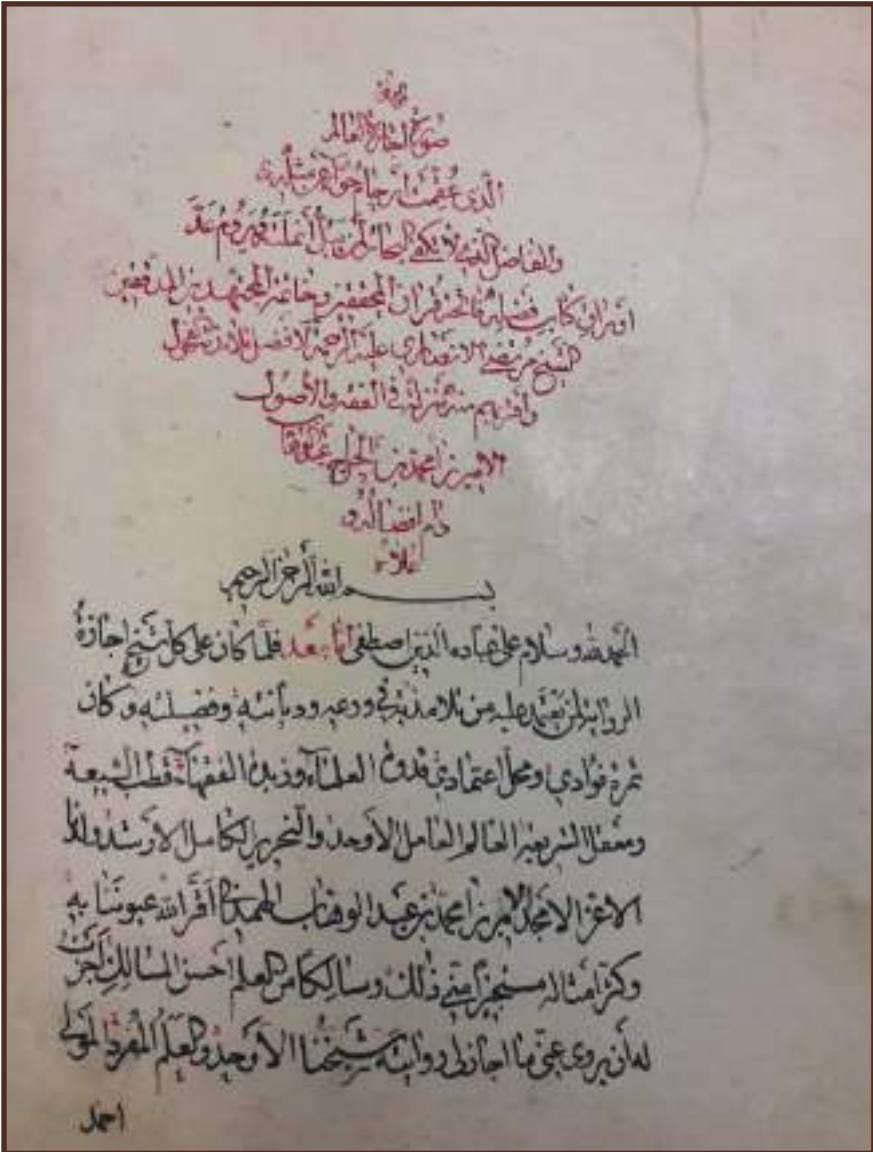 صورة اجازة العالم
الذي عقمت ارحام حوّا عن مثله
والفاضل الفقيه لا تكفي
اوراق كتاب فضله فخر المحققين وخاتمة المجتهدين المدققين
الشيخ مرتضى الانصاري عليه الرحمة لافضل تلامذته
وأقربهم منه منزلة في الفقه والأصول
الاميرزا محمد بن
بسم الله الرحمن الرحيم
الحمد لله وسلام على عباده الذين اصطفى أما بعد فلمّا كان على كل شيخ اجازة
الرواية لمن يعتمد عليه من تلامذته في ورعه وديانته وفضيلته وكان
ثمرة فؤادي ومحل اعتمادي قدوة العلماء وزبدة الفقهاء قطب الشيعة
ومعقل الشريعة العالم العامل الأوحد والنحرير الكامل الارشد ولدنا
الاعز الامجد الاميرزا محمد بن عبد الوهاب الهمداني أقر الله عيوننا به
وكثر امثاله مستجيزا مني ذلك وسالكا من العلم احسن المسالك اجزت
له أن يروي عني ما اجاز لي روايته شيخنا الأوحد والعلم المفرد المولى
احمد